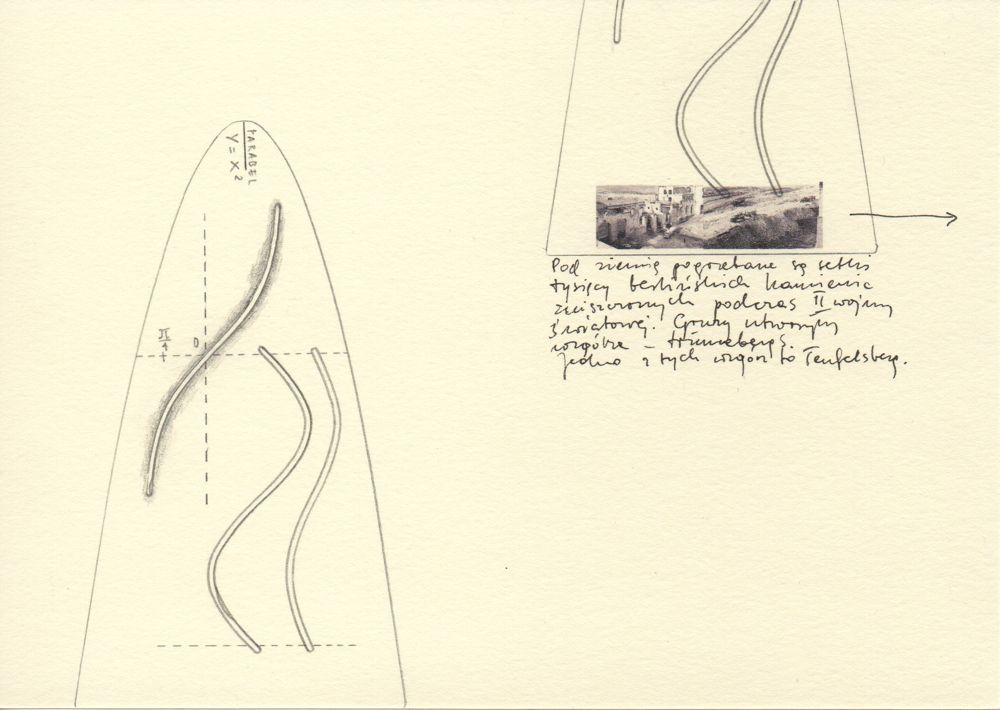 PARABEL
Y = X²
0
Pod ziemią pogrzebane są setki
tysięcy berlińskich kamienic
zniszczonych podczas II wojny
światowej. Gruzy utworzyły
wzgórza – trümmebergs.
jedno z tych wzgórz to Teufelsberg.